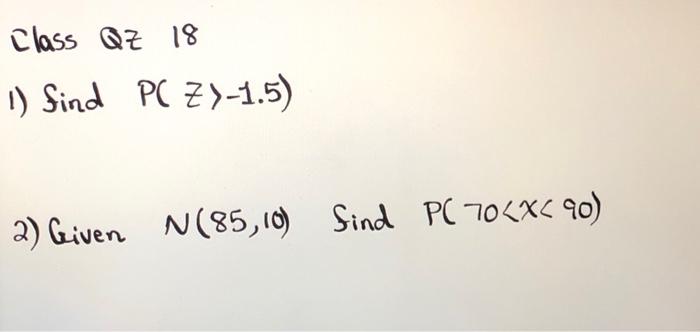 Class QZ 18
1) find P(Z>-1.5)
2) Given N(85,10) find P(70<X<90)